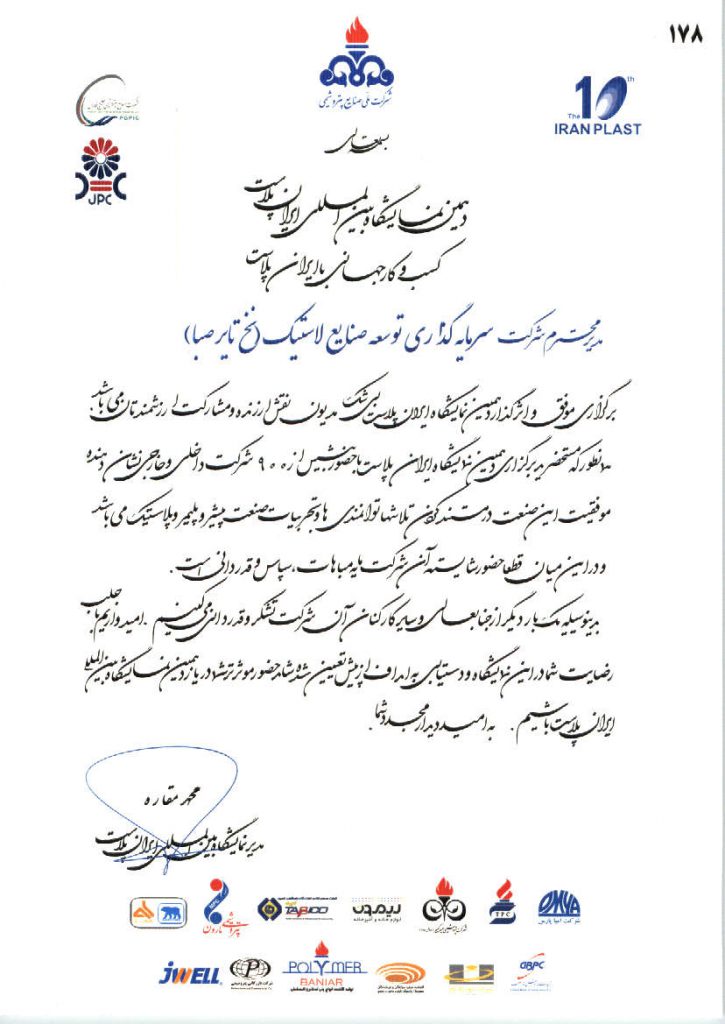 ۱۷۸
شرکت ملی صنایع پتروشیمی
PGPIC
The 10th
IRAN PLAST
JPC
بسمه تعالی
دهمین نمایشگاه بین المللی ایران پلاست
کسب و کار جهانی با ایران پلاست
مدیر محترم شرکت سرمایه گذاری توسعه صنایع لاستیک (نخ تایر صبا)
برگزاری موفق و اثرگذار دهمین نمایشگاه ایران پلاست بی شک مدیون نقش ارزنده و مشارکت ارزشمندتان می باشد.
همانطور که مستحضرید برگزاری دهمین نمایشگاه ایران پلاست با حضور بیش از ۹۰۰ شرکت داخلی و خارجی نشان دهنده
موفقیت این صنعت در مستند کردن تلاشها توانمندی ها و تجربیات صنعت پیشرو پلیمر و پلاستیک می باشد
و در این میان قطعا حضور شایسته آن شرکت مایه مباهات، سپاس و قدردانی است.
بدینوسیله یک بار دیگر از جنابعالی و سایر کارکنان آن شرکت تشکر و قدردانی می کنیم. امیدواریم با جلب
رضایت شما در این نمایشگاه و دستیابی به اهداف از پیش تعیین شده شاهد حضور موثرتر شما در یازدهمین نمایشگاه بین المللی
ایران پلاست باشیم. به امید دیدار مجدد شما.
محمد مقاره
مدیر نمایشگاه بین المللی ایران پلاست
پتروشیمی نارون
TABICO
بیمون
لوازم خانه و آشپزخانه
TPC
OMYA
شرکت امیا پارس
JWELL
شرکت بازرگانی پتروشیمی
POLYMER
BANIAR
GBPC